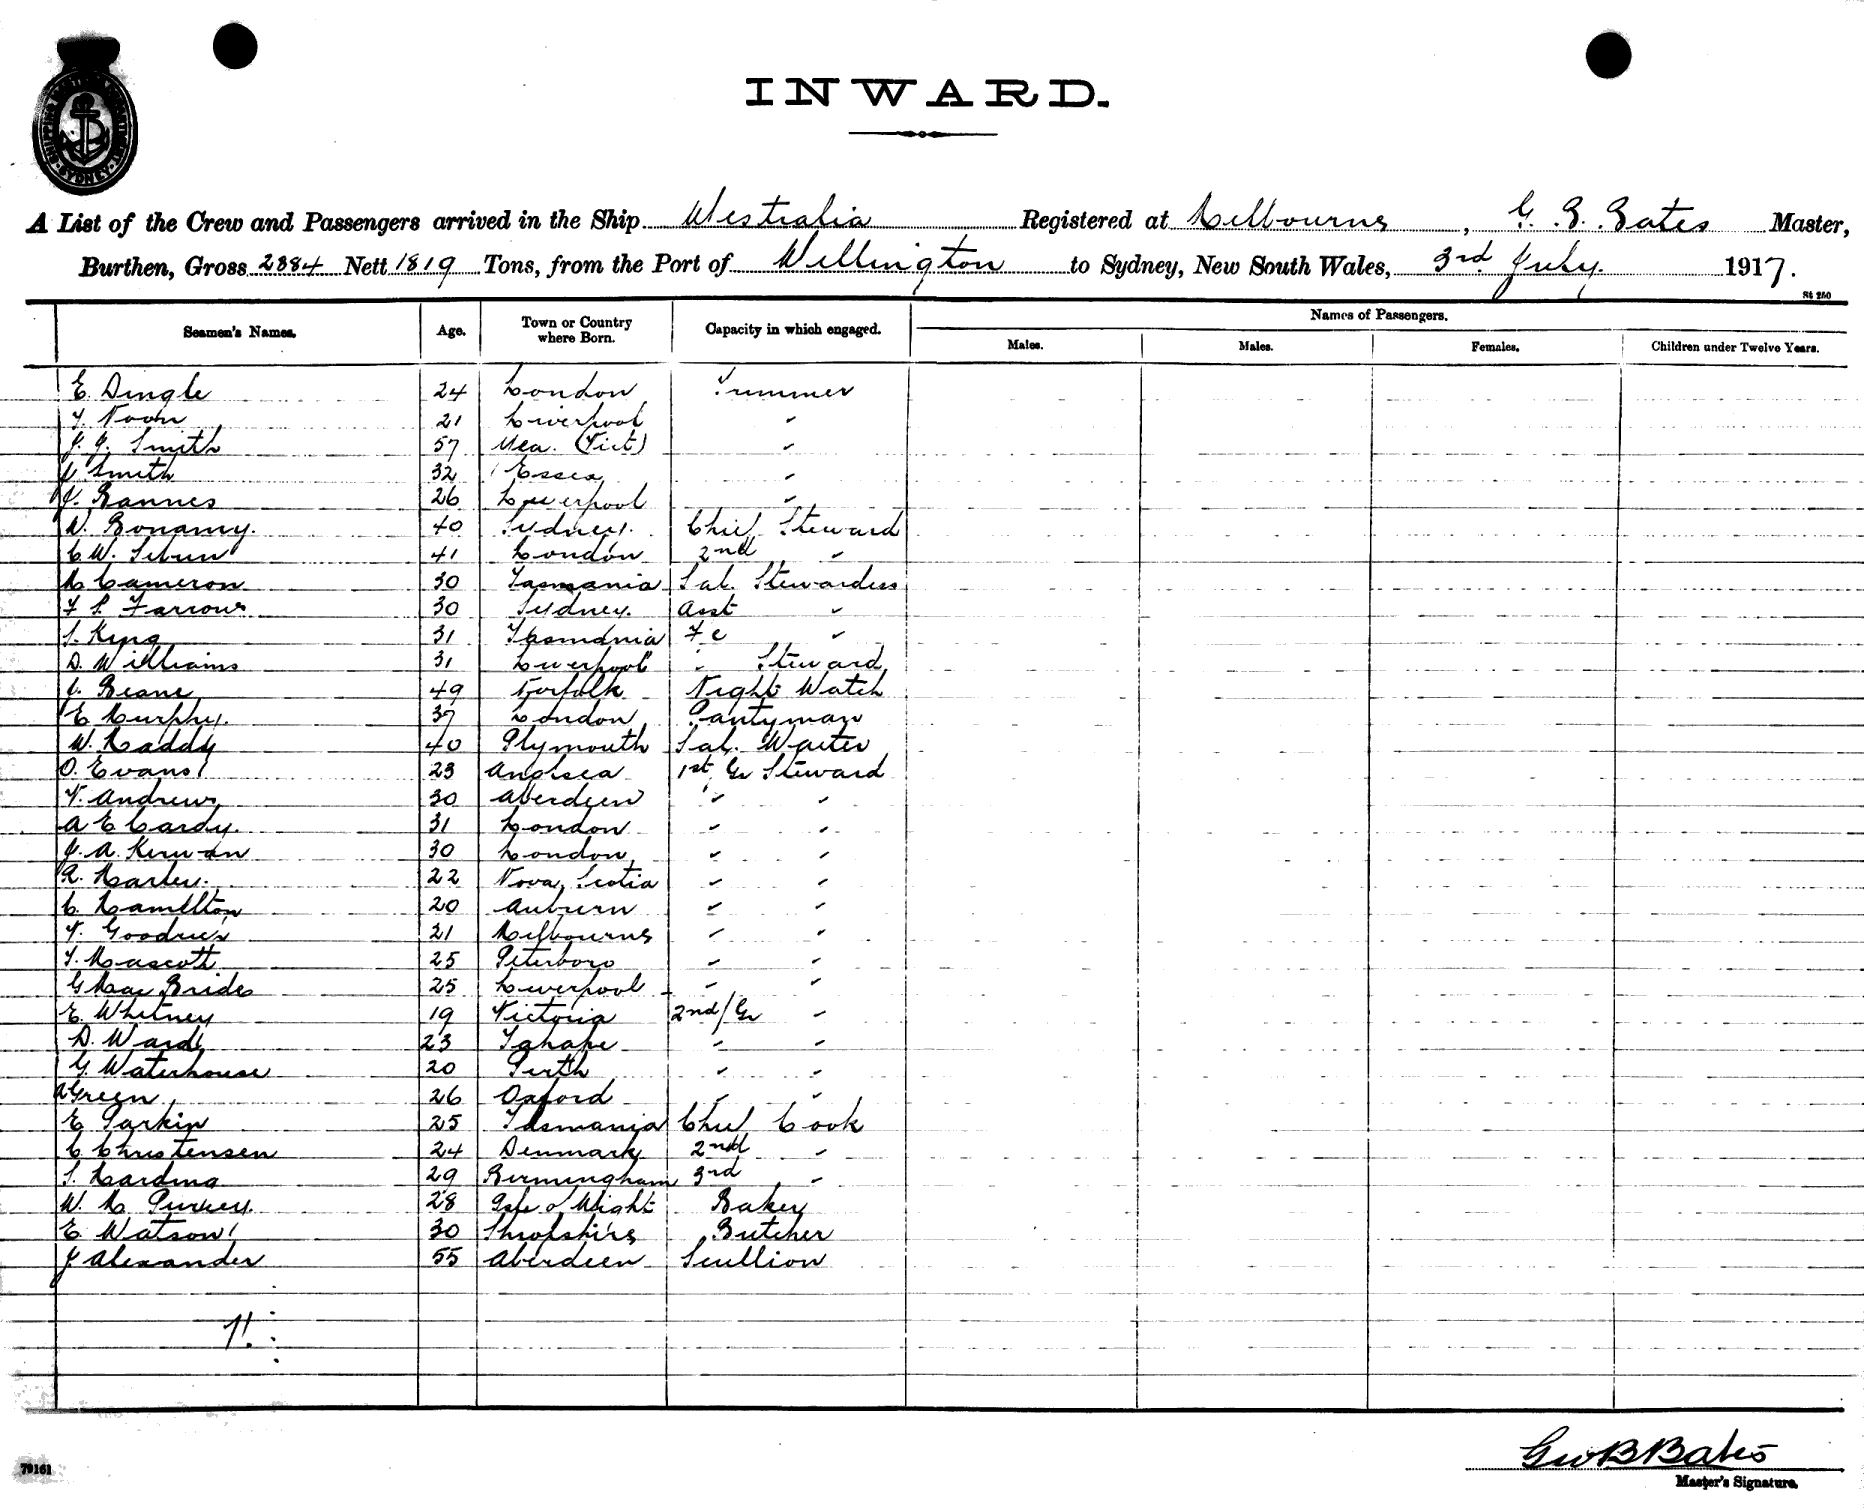 SHIPPING MASTER'S DEPARTMENT SYDNEY
INWARD.
A List of the Crew and Passengers arrived in the Ship Westralia Registered at Melbourne, G. B. Bates Master,
Burthen, Gross 2884 Nett 1819 Tons, from the Port of Wellington to Sydney, New South Wales, 3rd July. 1917.
St 250
Seamen's Names. Age. Town or Country where Born. Capacity in which engaged. Names of Passengers.
Males. Males. Females. Children under Twelve Years.
E. Dingle 24 London Trimmer
T. Noon 21 Liverpool "
J. J. Smith 57 (Vict) "
J. Smith 32 Essex "
J. Bannes 26 Liverpool "
W. Bonamy. 40 Sydney. Chief Steward
C. W. 41 London 2nd "
M Cameron 30 Tasmania Sal. Stewardess
F S. Farrow 30 Sydney. Asst "
S. King 31 Tasmania F c "
D. Williams 31 Liverpool " Steward
J. Beane 49 Norfolk Night Watch
E Murphy. 37 London Pantyman
W. Maddy 40 Plymouth Sal. Waiter
O. Evans 23 Anglsea 1st Gr Steward
T. Andrews 30 Aberdeen " "
A E Cardy. 31 London " "
J. A. Kirwan 30 London " "
R. Harley. 22 Nova Scotia " "
C. Hamilton 20 Auburn " "
T. 21 Melbourne " "
T. Mascott 25 Peterboro " "
G MacBride 25 Liverpool " "
E. Whitney 19 Victoria 2nd/Gr "
D. Ward 23 Taihape " "
G. Waterhouse 20 Perth " "
A Green 26 Oxford " "
E Parkin 25 Tasmania Chief Cook
C Christensen 24 Denmark 2nd "
S. Harding 29 Birmingham 3rd "
W. H. 28 Isle of Wight Baker
E Watson 30 Shropshire Butcher
J Alexander 55 Aberdeen Scullion
Geo B Bates
79161
Master's Signature.